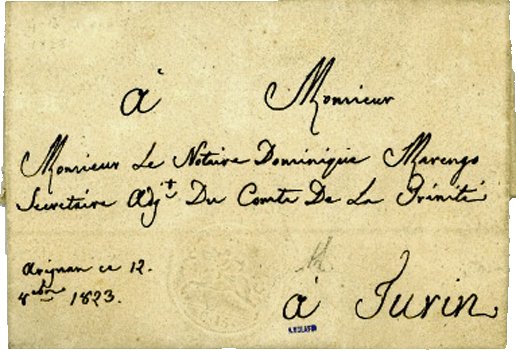 à Monsieur
Monsieur Le Notaire Dominique Marengo
Secretaire Adjt Du Comte De La Trinité
ce 12.
8bre 1823.
à Turin